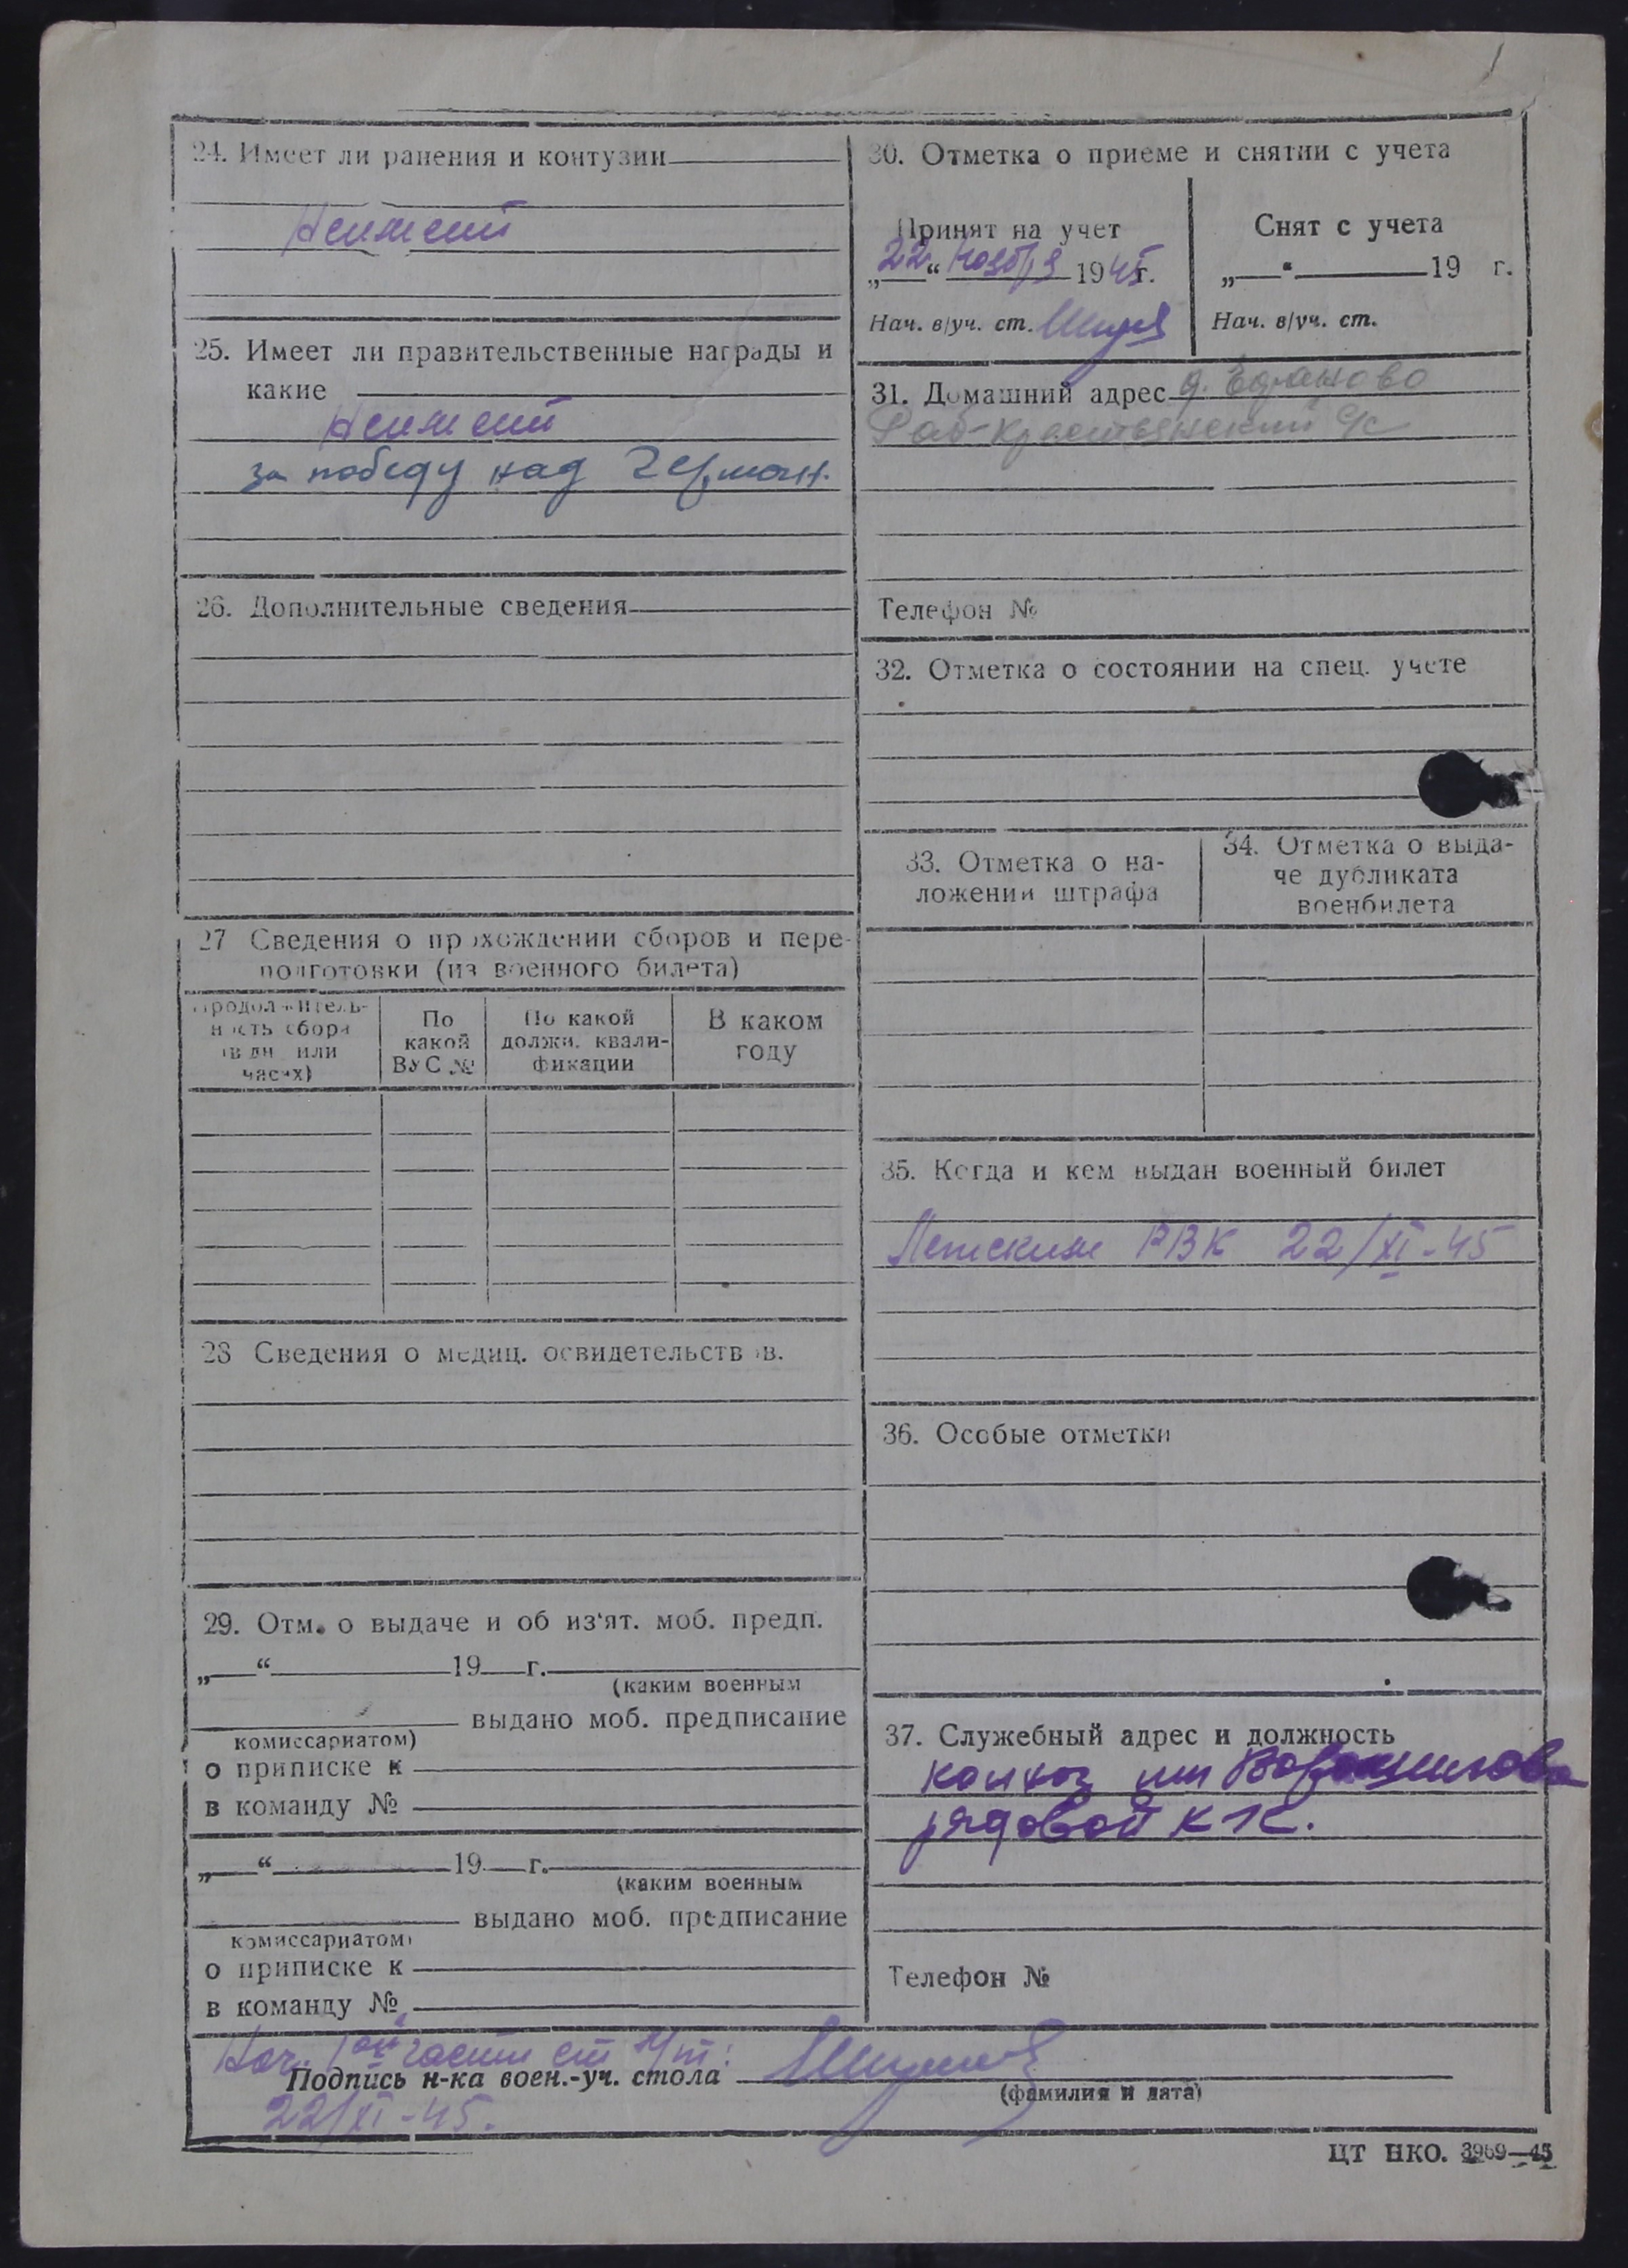 24. Имеет ли ранения и контузии
Неимеет
25. Имеет ли правительственные награды и
какие
Неимеет
за победу над Герман.
26. Дополнительные сведения
27 Сведения о прохождении сборов и пере-
подготовки (из военного билета)
Продолжитель-
ность сбора
(в дн или
часах)
По
какой
ВУС №
По какой
должн. квали-
фикации
В каком
году
28 Сведения о медиц. освидетельствов.
29. Отм. о выдаче и об из‘ят. моб. предп.
„ “ 19 г.
(каким военным
выдано моб. предписание
комиссариатом)
о приписке к
в команду №
„ “ 19 г.
(каким военным
выдано моб. предписание
комиссариатом)
о приписке к
в команду №
30. Отметка о приеме и снятии с учета
Принят на учет
„22“ ноября 1945г.
Нач. в/уч. ст.
Снят с учета
„ “ 19 г.
Нач. в/уч. ст.
31. Домашний адрес д.
Раб-Крестьянский с/с
Телефон №
32. Отметка о состоянии на спец. учете
33. Отметка о на-
ложении штрафа
34. Отметка о выда-
че дубликата
военбилета
35. Когда и кем выдан военный билет
РВК 22/XI-45
36. Особые отметки
37. Служебный адрес и должность
колхоз им Ворошилова
рядовой к-к.
Телефон №
Нач. части ст
Подпись н-ка воен.-уч. стола
(фамилия и дата)
22/XI-45.
ЦТ НКО. 3969—45